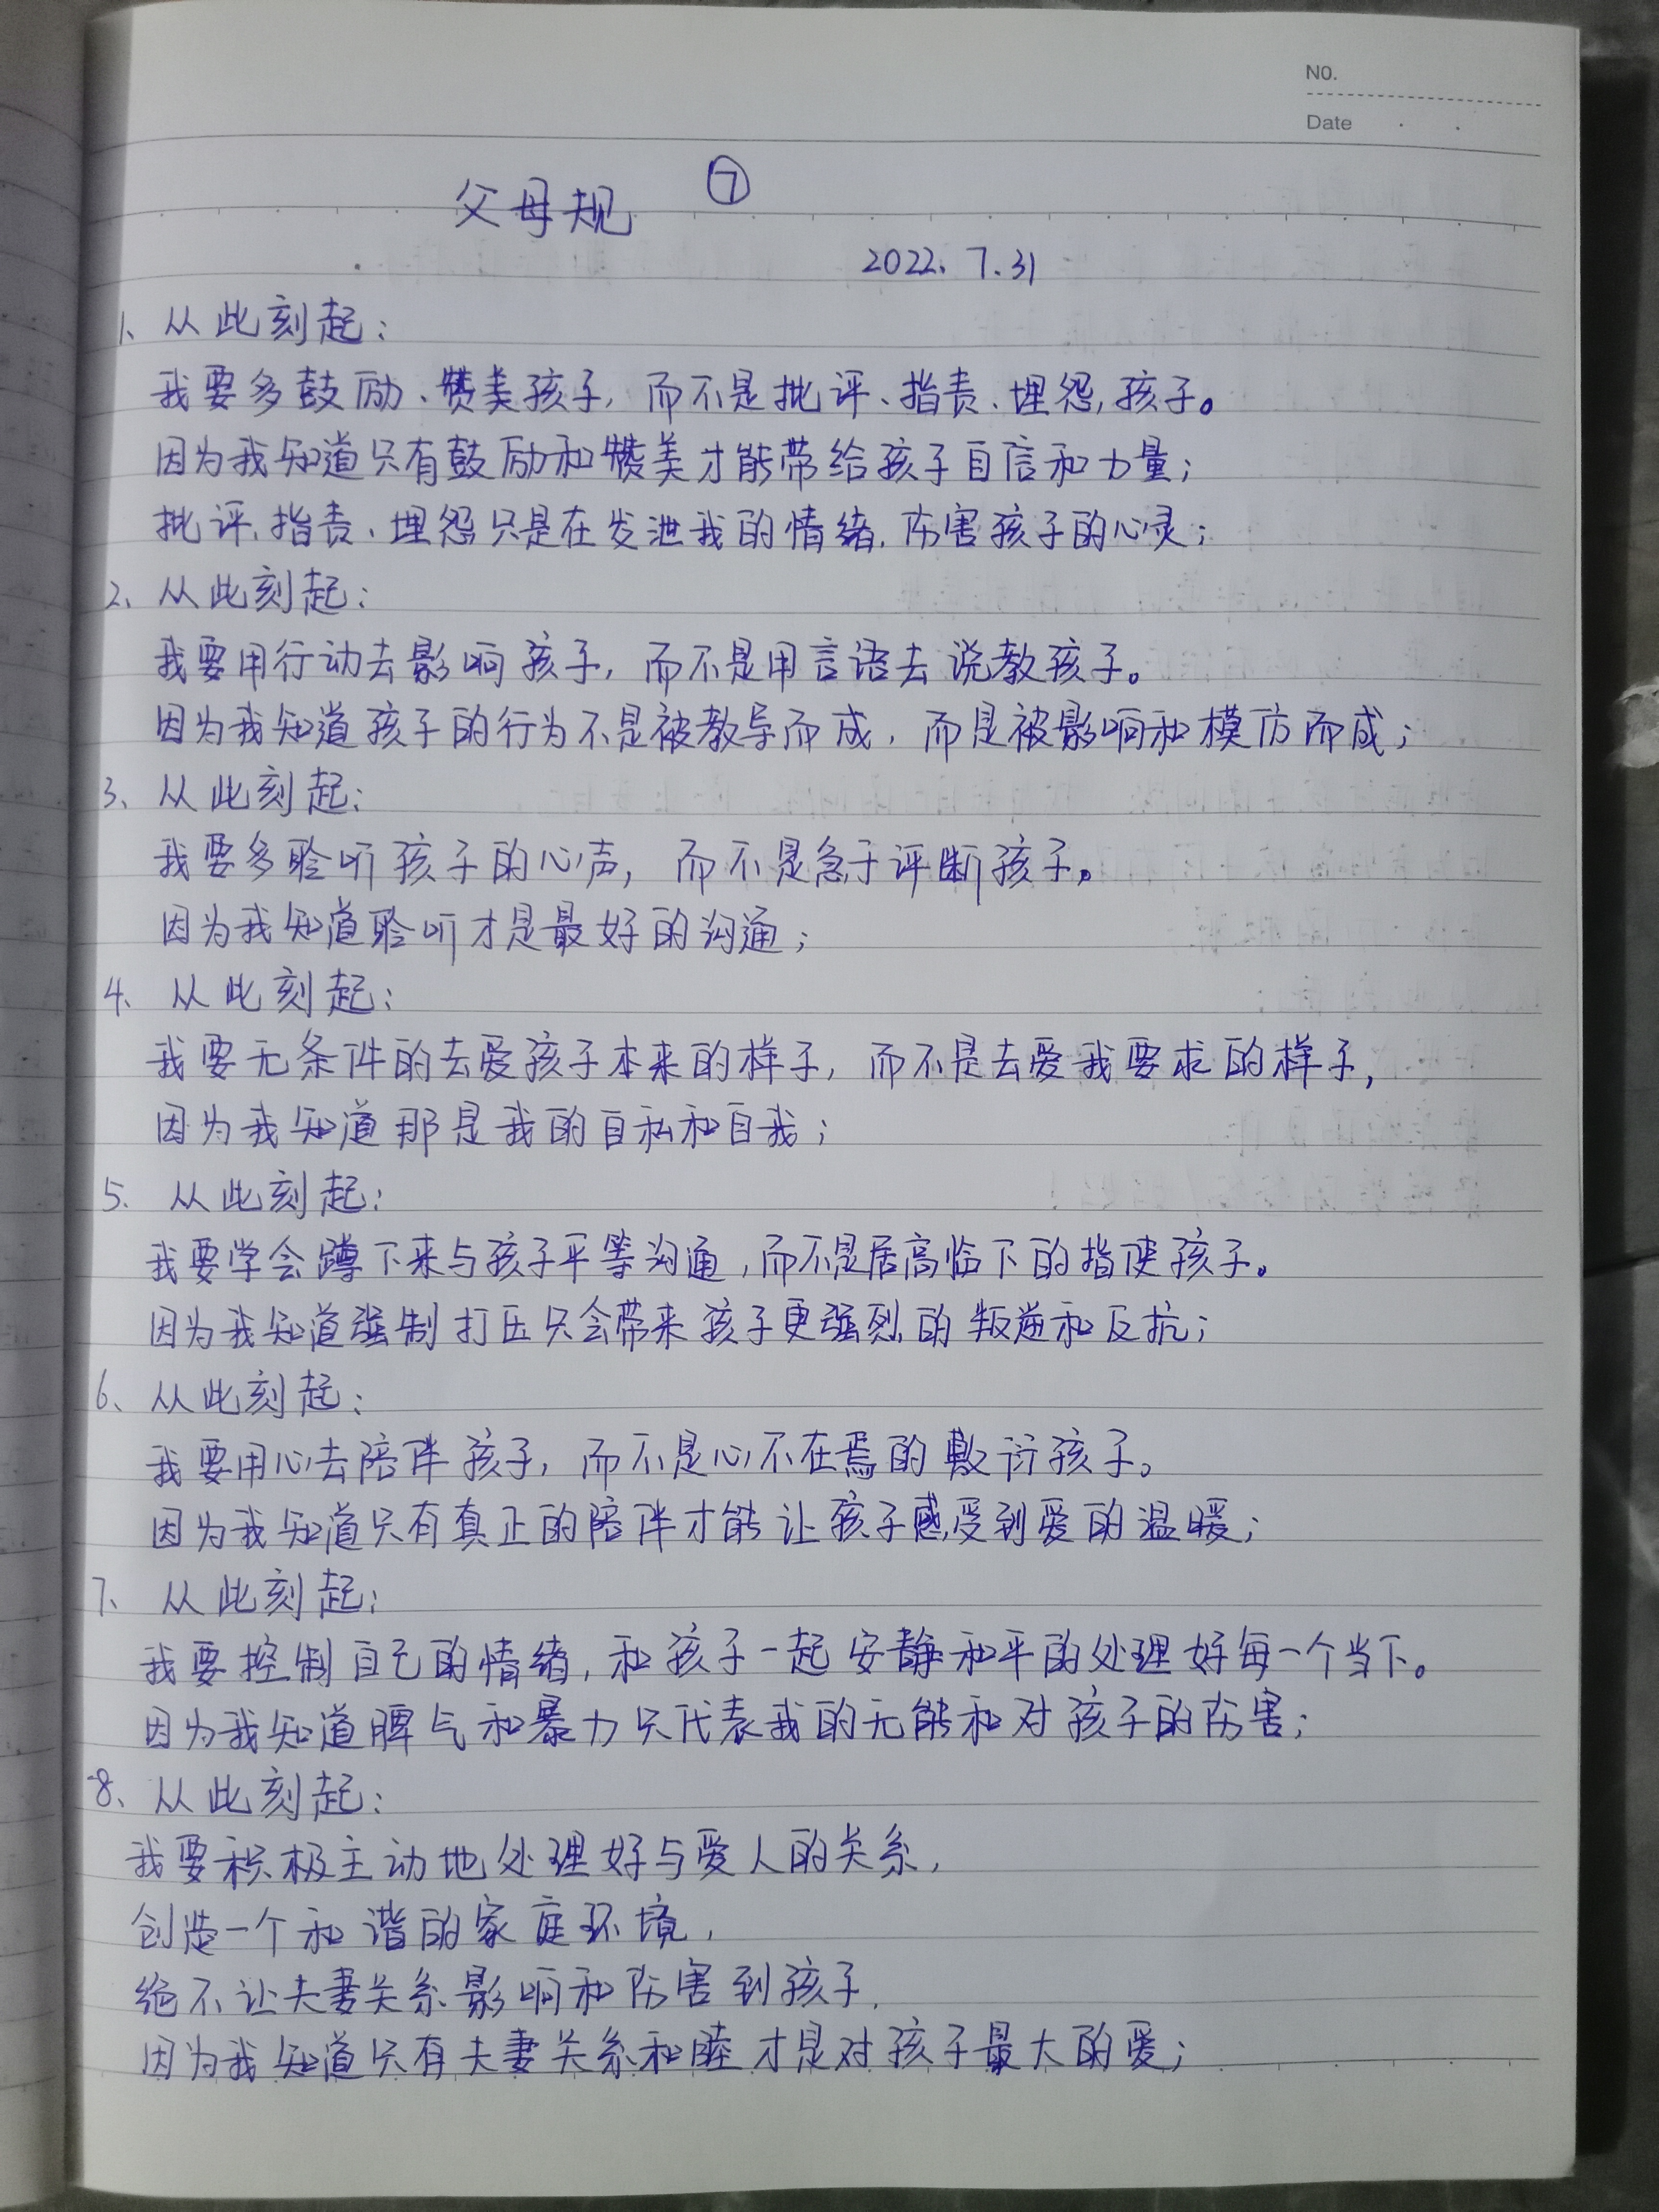 NO.
Date
父母规 ⑦
2022.7.31
1、从此刻起：
我要多鼓励、赞美孩子，而不是批评、指责、埋怨,孩子。
因为我知道只有鼓励和赞美才能带给孩子自信和力量；
批评、指责、埋怨只是在发泄我的情绪，伤害孩子的心灵；
2、从此刻起：
我要用行动去影响孩子，而不是用言语去说教孩子。
因为我知道孩子的行为不是被教导而成，而是被影响和模仿而成；
3、从此刻起：
我要多聆听孩子的心声，而不是急于评断孩子。
因为我知道聆听才是最好的沟通；
4、从此刻起：
我要无条件的去爱孩子本来的样子，而不是去爱我要求的样子，
因为我知道那是我的自私和自我；
5、从此刻起：
我要学会蹲下来与孩子平等沟通，而不是居高临下的指使孩子。
因为我知道强制打压只会带来孩子更强烈的叛逆和反抗；
6、从此刻起：
我要用心去陪伴孩子，而不是心不在焉的敷衍孩子。
因为我知道只有真正的陪伴才能让孩子感受到爱的温暖；
7、从此刻起：
我要控制自己的情绪，和孩子一起安静和平的处理好每一个当下。
因为我知道脾气和暴力只代表我的无能和对孩子的伤害；
8、从此刻起：
我要积极主动地处理好与爱人的关系，
创造一个和谐的家庭环境，
绝不让夫妻关系影响和伤害到孩子，
因为我知道只有夫妻关系和睦才是对孩子最大的爱；